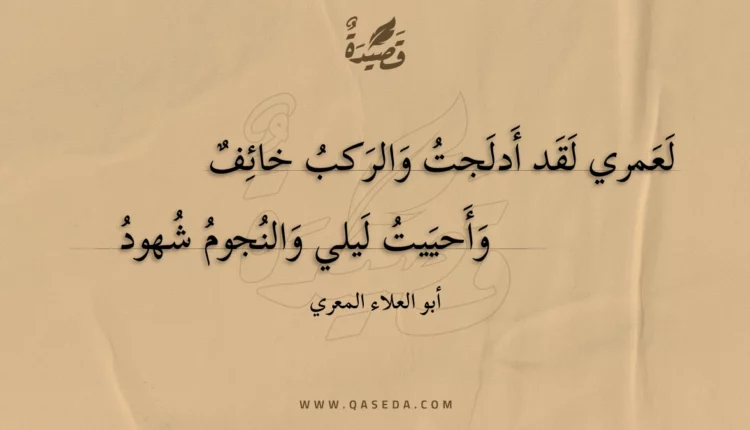 قَصِيدَةٌ
لَعَمري لَقَد أَدلَجتُ وَالرَكبُ خائِفٌ
وَأَحيَيتُ لَيلي وَالنُجومُ شُهودُ
أبو العلاء المعري
WWW.QASEDA.COM